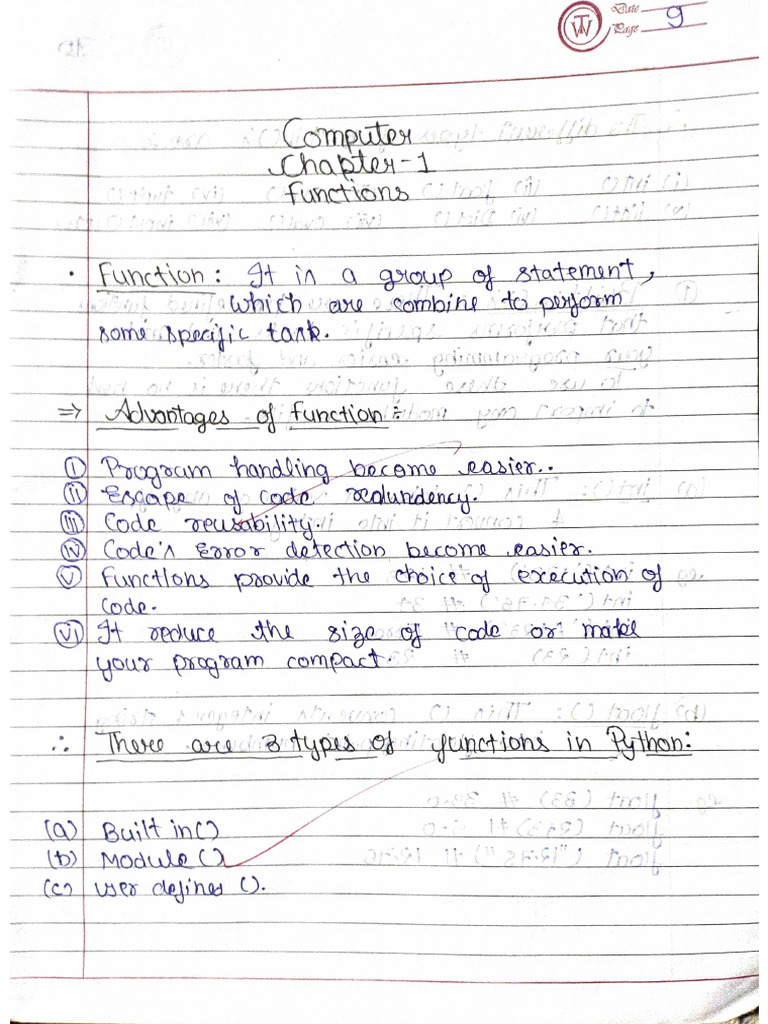 Date
Page 9
Computer
Chapter-1
functions
· Function: It is a group of statement,
which are combine to perform
some specific task.
⇒ Advantages of function:-
(i) Program handling become easier..
(ii) Escape of code redundency.
(iii) Code reusability.
(iv) Code's Error detection become easier.
(v) functions provide the choice of execution of
code.
(vi) It reduce the size of code or make
your program compact.
∴ There are 3 types of functions in Python:
(a) Built in()
(b) Module ()
(c) User defines ().